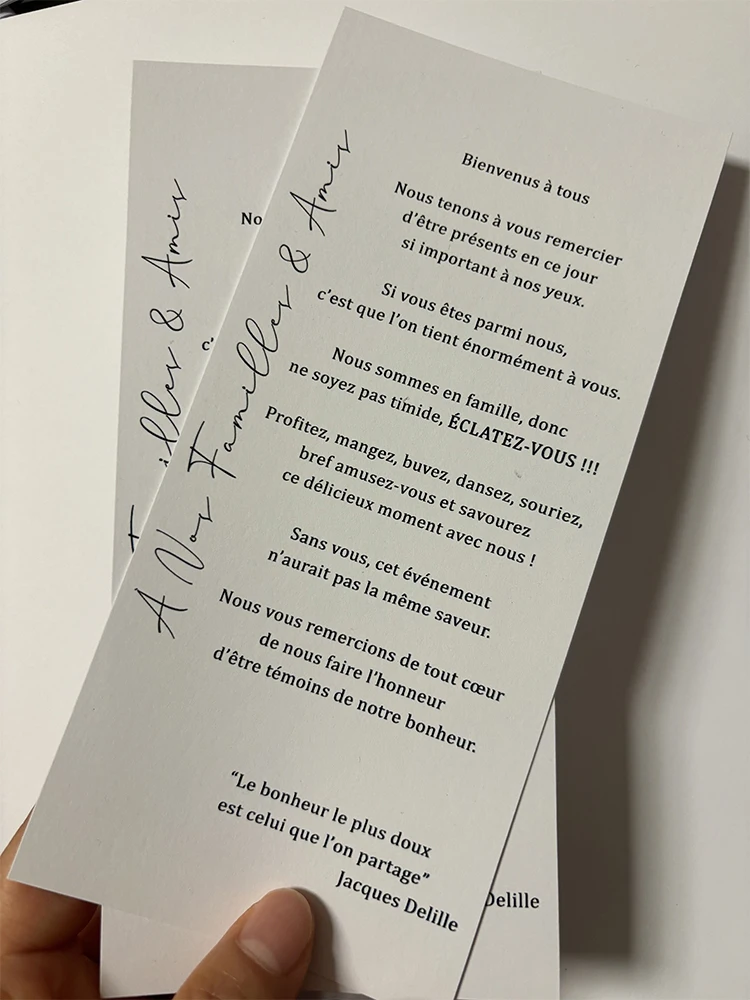 A Nos Familles & Amis
Bienvenus à tous
Nous tenons à vous remercier
d'être présents en ce jour
si important à nos yeux.
Si vous êtes parmi nous,
c'est que l'on tient énormément à vous.
Nous sommes en famille, donc
ne soyez pas timide, ÉCLATEZ-VOUS !!!
Profitez, mangez, buvez, dansez, souriez,
bref amusez-vous et savourez
ce délicieux moment avec nous !
Sans vous, cet événement
n'aurait pas la même saveur.
Nous vous remercions de tout cœur
de nous faire l'honneur
d'être témoins de notre bonheur.
“Le bonheur le plus doux
est celui que l'on partage”
Jacques Delille
illes & Amis
No
c'
Delille